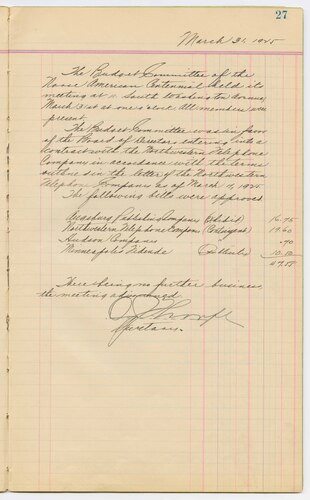 27
March 31, 1925
The Budget Committee of the
Norse American Centennial held its
meeting at 11 South Washington Avenue,
March 31st at one o'clock. All members were
present.
The Budget Committee was in favor
of the Board of Directors entering into a
contract with the Northwestern Telephone
Company in accordance with the terms
outlined in the letter of the Northwestern
Telephone Company as of March 4, 1925.
The following bills were approved
Augsburg Publishing Company 16.75
Northwestern Telephone Company 19.60
Hudson Company .90
Minneapolis Tidende 10.10
There being no further business
the meeting adjourned
Secretary.